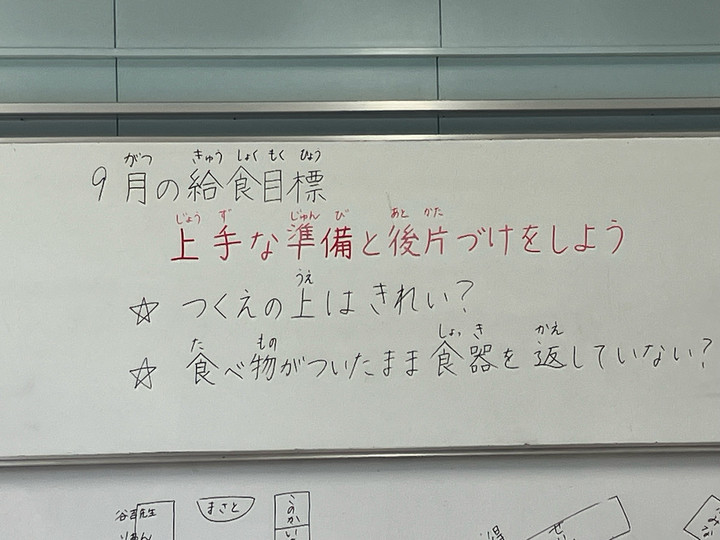 9月の給食目標
がつ きゅう しょく もく ひょう
上手な準備と後片づけをしよう
じょう ず じゅん び あと かた
☆ つくえの上はきれい?
うえ
☆ 食べ物がついたまま食器を返していない?
た もの しょっ き かえ
まさと
このか